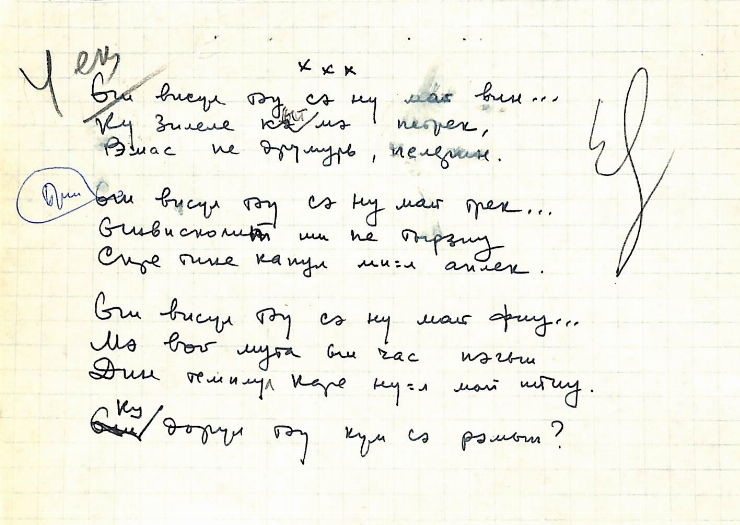 x x x
Ын висул тэу сэ ну май вин...
Ку зилеле кыт мэ петрек,
Рэмас пе друмурь, пелерин.
Прин висул тэу сэ ну май трек...
Ынвисколит ши пе тырзиу
Спре тине капул ми-л аплек.
Ын висул тэу сэ ну май фиу...
Мэ вой мута ын час пэгын
Дин темплул каре ну-л май штиу.
Ку дорул тэу кум сэ рэмын?